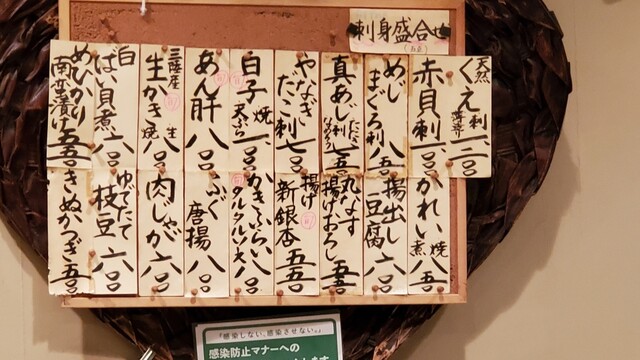 刺身盛合せ
(五点)
天然
くえ刺
薄造り
一二〇〇
赤貝刺 一〇〇〇
めじ
まぐろ刺 八五〇
真あじ刺
たたき
なめろう
七五〇
やなぎ
たこ刺 七〇〇
白子
焼
天ぷら
一〇〇〇
あん肝 八〇〇
三陸産
生かき
生
焼
八〇〇
白
ばい貝煮 六〇〇
めひかり
南蛮漬け 五五〇
かれい
焼
煮
八五〇
揚出し
豆腐 六〇〇
丸なす
揚げおろし 五五〇
揚げ
新銀杏 五五〇
かきふらい 八〇〇
タルタルソース
ふぐ
唐揚 八〇〇
肉じゃが 六〇〇
ゆでたて
枝豆 六〇〇
きぬかつぎ 五〇〇
「感染しない、感染させない。」
感染防止マナーへの